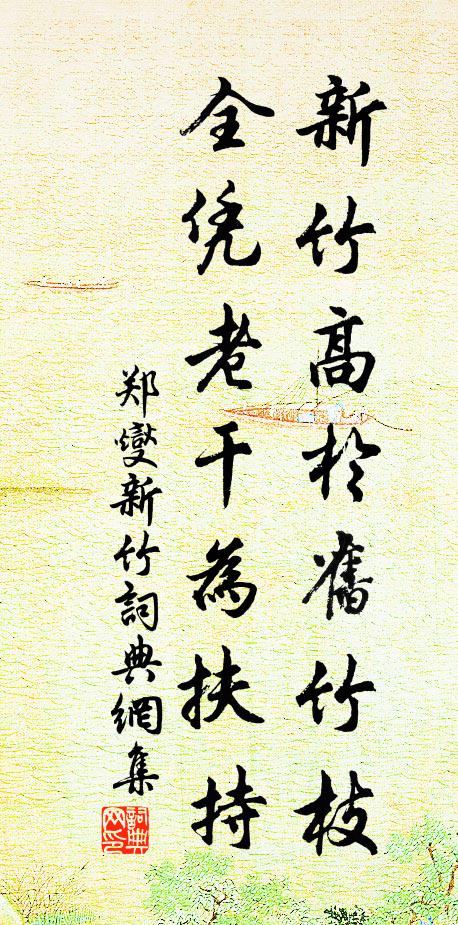 新竹高於舊竹枝
全凭老干為扶持
郑燮新竹詞典網集
詞典网印